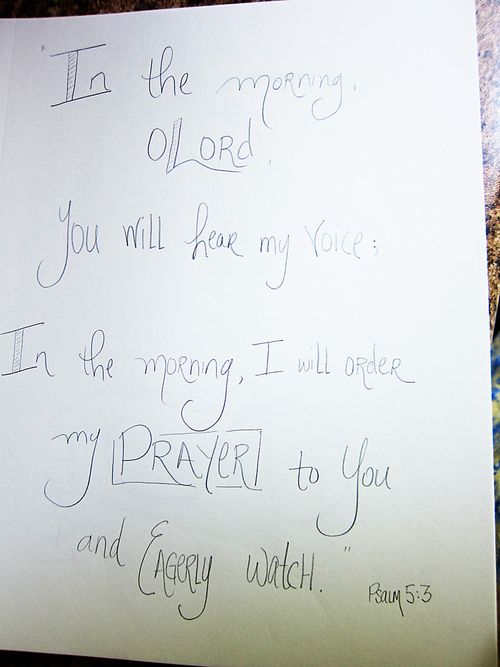 "In the morning,
O Lord,
You will hear my voice;
In the morning, I will order
my PRAYER to You
and Eagerly watch."
Psalm 5:3